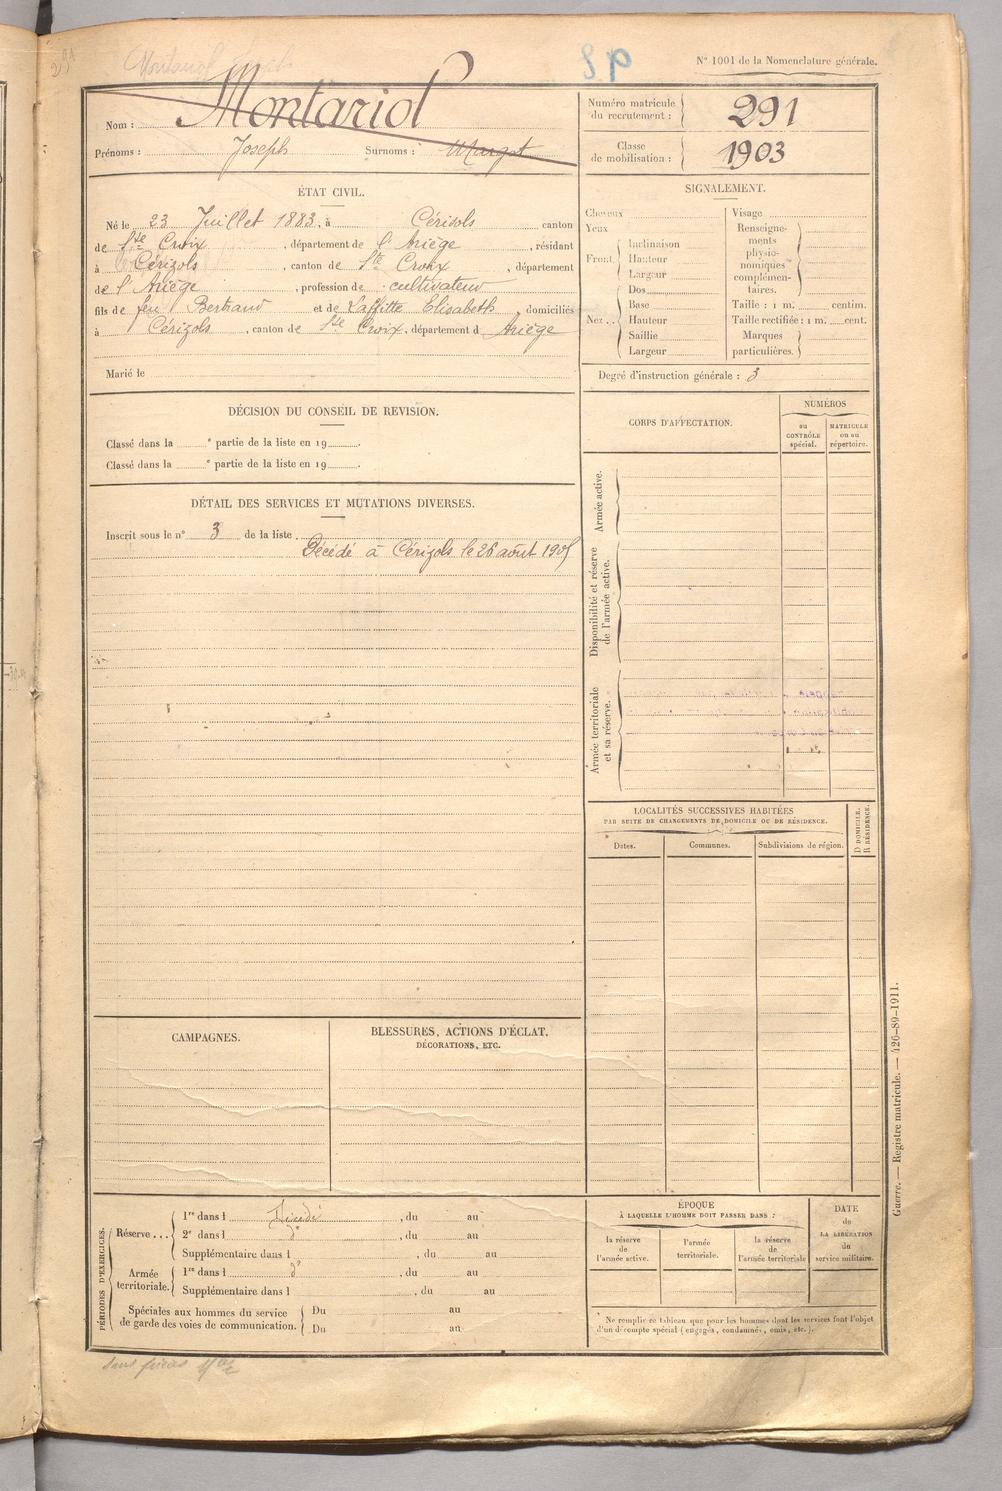 291
Montariol Joseph
S P
N° 1001 de la Nomenclature générale.
Nom : Montariol
Prénoms : Joseph Surnoms : Margot
Numéro matricule du recrutement : 291
Classe de mobilisation : 1903
ÉTAT CIVIL.
Né le 23 Juillet 1883, à Cérizols canton
de Ste Croix, département de l'Ariège, résidant
à Cérizols, canton de Ste Croix, département
de l'Ariège, profession de cultivateur
fils de feu Bertrand et de Laffitte Elisabeth, domiciliés
à Cérizols, canton de Ste Croix, département d Ariège
Marié le
SIGNALEMENT.
Cheveux
Yeux
Front.
Inclinaison
Hauteur
Largeur
Nez..
Dos
Base
Hauteur
Saillie
Largeur
Visage
Renseigne-
ments
physio-
nomiques
complémen-
taires.
Taille : 1 m. centim.
Taille rectifiée : 1 m. cent.
Marques
particulières.
Degré d'instruction générale : 3
DÉCISION DU CONSEIL DE REVISION.
Classé dans la e partie de la liste en 19 .
Classé dans la e partie de la liste en 19 .
DÉTAIL DES SERVICES ET MUTATIONS DIVERSES.
Inscrit sous le n° 3 de la liste
Décédé à Cérizols le 26 août 1905
CORPS D'AFFECTATION.
NUMÉROS
au
CONTRÔLE
spécial.
MATRICULE
ou au
répertoire.
Armée active.
Disponibilité et réserve
de l'armée active.
Armée territoriale
et sa réserve.
LOCALITÉS SUCCESSIVES HABITÉES
PAR SUITE DE CHANGEMENTS DE DOMICILE OU DE RÉSIDENCE.
Dates.
Communes.
Subdivisions de région.
D DOMICILE.
R RÉSIDENCE.
CAMPAGNES.
BLESSURES, ACTIONS D'ÉCLAT.
DÉCORATIONS, ETC.
PÉRIODES D'EXERCICES.
Réserve...
1re dans l Décédé, du au
2e dans l d°, du au
Supplémentaire dans l , du au
Armée
territoriale.
1re dans l d°, du au
Supplémentaire dans l , du au
Spéciales aux hommes du service
de garde des voies de communication.
Du au
Du au
ÉPOQUE
À LAQUELLE L'HOMME DOIT PASSER DANS :
la réserve
de
l'armée active.
l'armée
territoriale.
la réserve
de
l'armée territoriale
DATE
de
LA LIBÉRATION
du
service militaire.
Ne remplir ce tableau que pour les hommes dont les services font l'objet
d'un décompte spécial (engagés, condamnés, omis, etc.).
Guerre. — Registre matricule. — 426-89-1911.